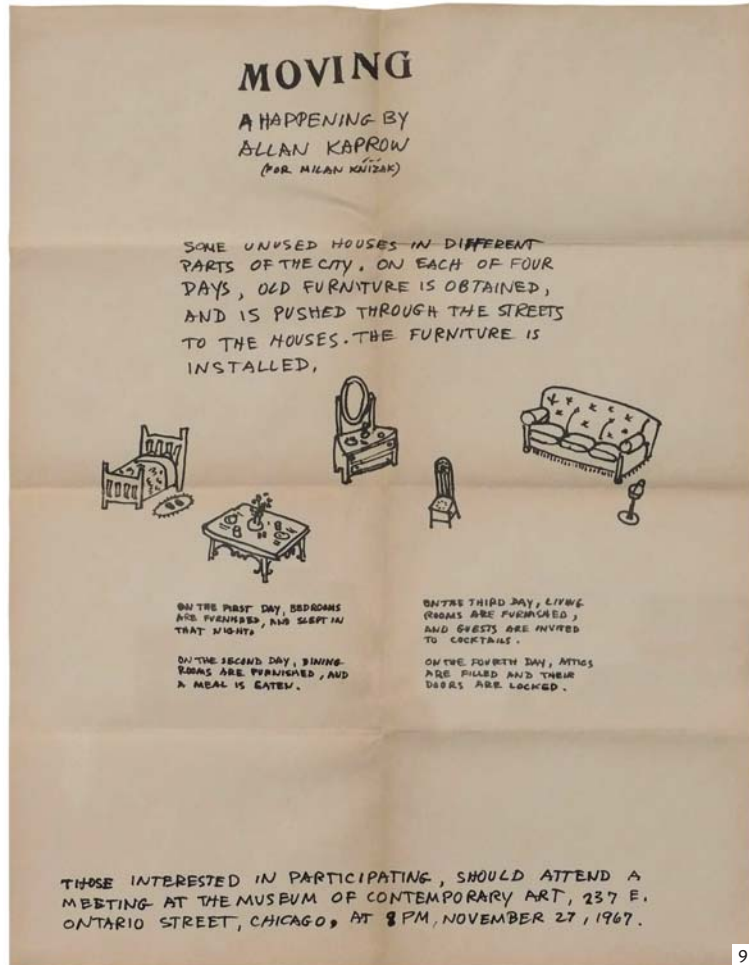 MOVING
A HAPPENING BY
ALLAN KAPROW
(FOR MILAN KNÍŽAK)
SOME UNUSED HOUSES IN DIFFERENT
PARTS OF THE CITY. ON EACH OF FOUR
DAYS, OLD FURNITURE IS OBTAINED,
AND IS PUSHED THROUGH THE STREETS
TO THE HOUSES. THE FURNITURE IS
INSTALLED.
ON THE FIRST DAY, BEDROOMS
ARE FURNISHED, AND SLEPT IN
THAT NIGHT.
ON THE SECOND DAY, DINING
ROOMS ARE FURNISHED, AND
A MEAL IS EATEN.
ON THE THIRD DAY, LIVING
ROOMS ARE FURNISHED,
AND GUESTS ARE INVITED
TO COCKTAILS.
ON THE FOURTH DAY, ATTICS
ARE FILLED AND THEIR
DOORS ARE LOCKED.
THOSE INTERESTED IN PARTICIPATING, SHOULD ATTEND A
MEETING AT THE MUSEUM OF CONTEMPORARY ART, 237 E.
ONTARIO STREET, CHICAGO, AT 8 PM, NOVEMBER 27, 1967.
9